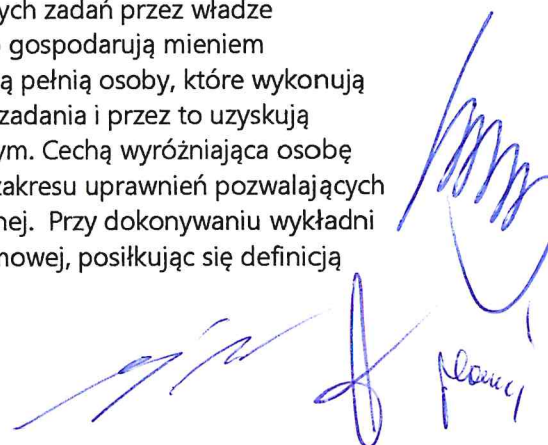 ych zadań przez władze
gospodarują mieniem
ą pełnią osoby, które wykonują
zadania i przez to uzyskują
ym. Cechą wyróżniająca osobę
zakresu uprawnień pozwalających
nej. Przy dokonywaniu wykładni
nowej, posiłkując się definicją